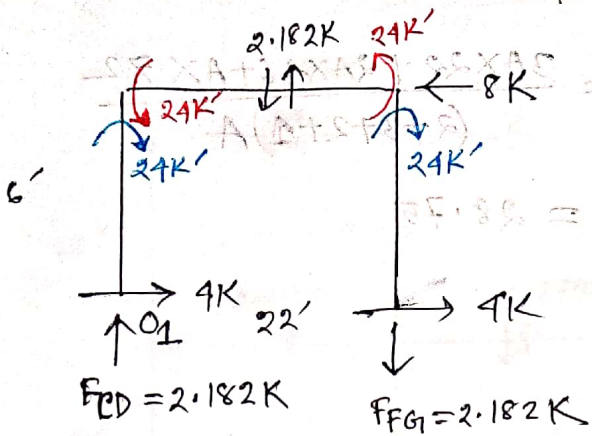 2.182K 24K′
← 8K
24K′
24K′ 24K′
6′
→ 4K 22′ → 4K
O1
FCD = 2.182K
FFG = 2.182K